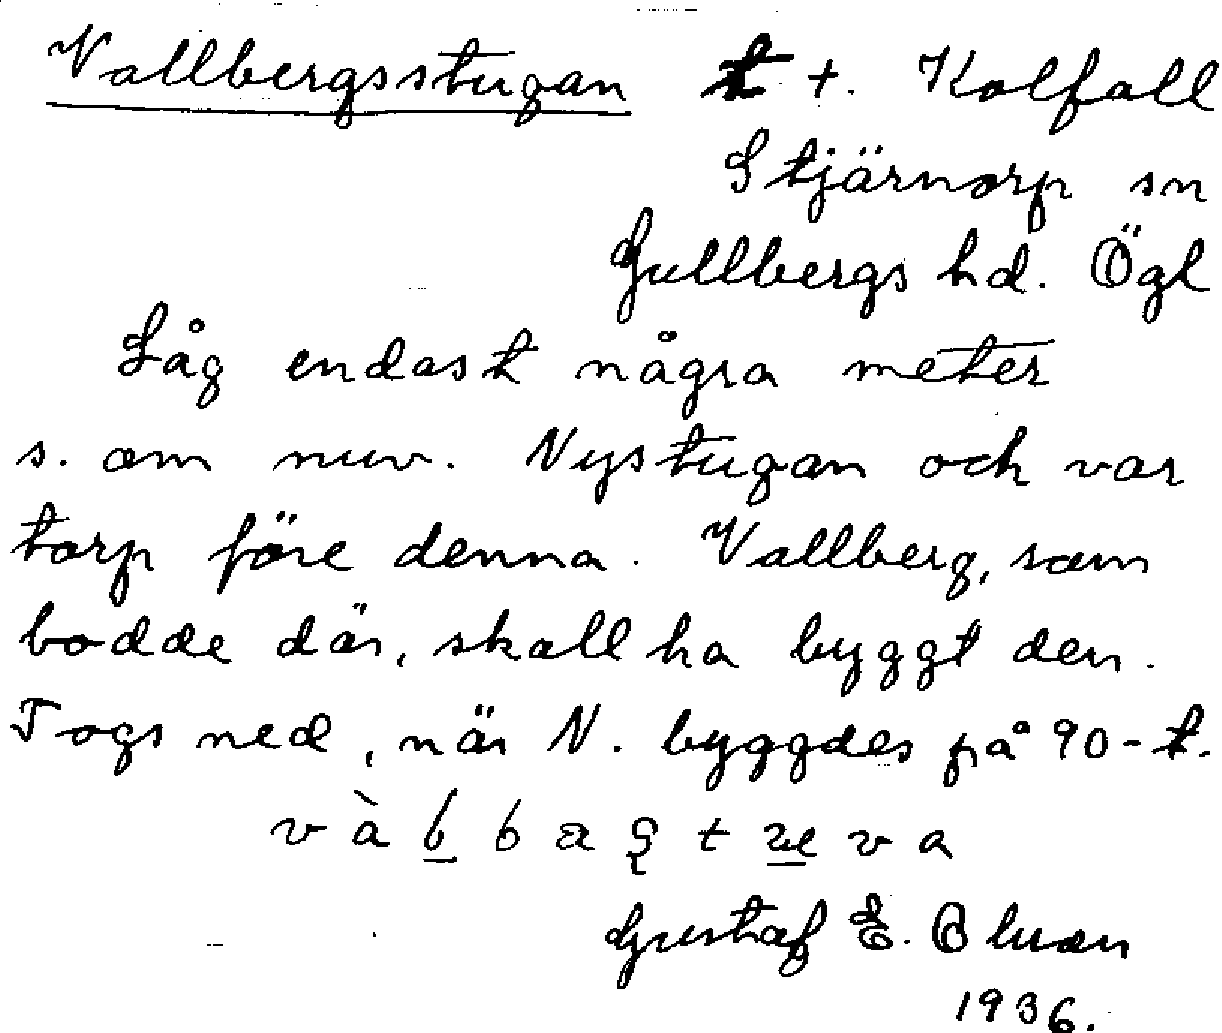 Vallbergsstugan t +. Kolfall
Stjärnorp sn
Gullbergs hd. Ögl
Låg endast några meter
s. om nuv. Nystugan och var
torp före denna. Vallberg, som
bodde där, skall ha byggt den.
Togs ned, när N. byggdes på 90-t.
Gustaf E.
1936.